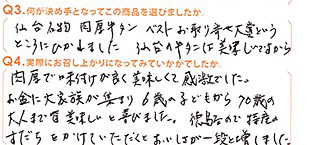 Q3.何が決め手となってこの商品を選びましたか。
仙台名物 肉厚牛タン ベストお取り寄せ大賞という
ところにひかれました 仙台の牛タンは美味しいですから
Q4.実際にお召し上がりになってみていかがでしたか。
肉厚で味付けが良く美味しくて感激でした。
お盆に大家族が集まり 6歳の子どもから70歳の
大人まで皆美味しいと喜びました。徳島なので特産の
すだちをかけていただくとおいしさが一段と増しました